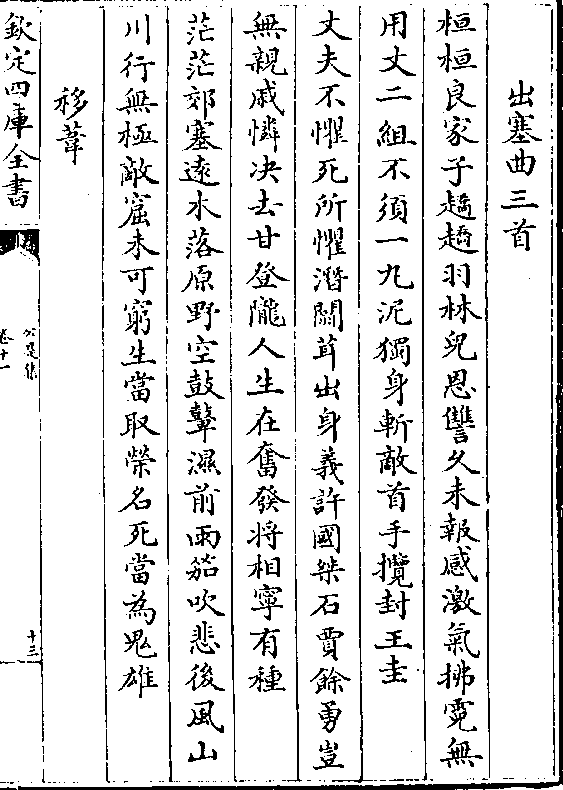 出塞曲三首
桓桓良家子趫趫羽林兒恩讐久未報感激氣拂霓無
用丈二組不須一九泥獨身斬敵首手攬封王圭
丈夫不懼死所懼潛闒茸出身義許國桀石賈餘勇豈
無親戚憐决去甘登隴人生在奮發將相寧有種
茫茫郊塞逺水落原野空鼓鼙濕前雨笳吹悲後風山
川行無極敵窟未可窮生當取榮名死當為鬼雄
移葦
欽定四庫全書
公是集
卷十一
十三